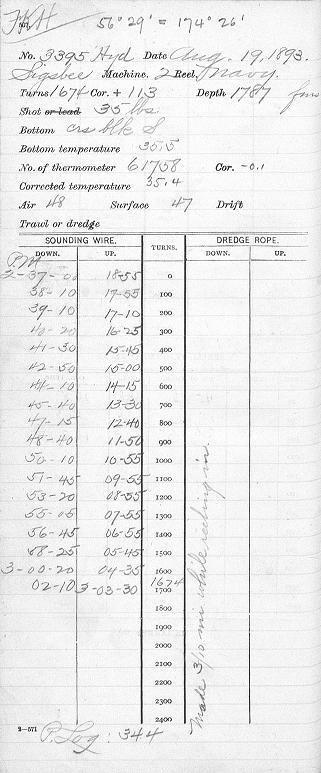 56° 29' = 174° 26'
No. 3395 Hyd Date Aug. 19, 1893.
Sigsbee Machine. 2 Reel, Navy.
Turns 1674 Cor. + 113 Depth 1787 fms
Shot or lead 35 lbs
Bottom crs blk S
Bottom temperature 35.5
No. of thermometer 61758 Cor. -0.1
Corrected temperature 35.4
Air 48 Surface 47 Drift
Trawl or dredge
SOUNDING WIRE. TURNS. DREDGE ROPE.
DOWN. UP. DOWN. UP.
P.M.
2-37-00 18-55 0
38-10 17-55 100
39-10 17-10 200
40-20 16-25 300
41-30 15-45 400
42-50 15-00 500
44-10 14-15 600
45-40 13-30 700
47-15 12-40 800
48-40 11-50 900
50-10 10-55 1000
51-45 09-55 1100
53-20 08-55 1200
55-05 07-55 1300
56-45 06-55 1400
58-25 05-45 1500
3-00-20 04-35 1600
02-10 3-03-30 1674
1700
1800
1900
2000
2100
2200
2300
2400
Made 3/10 mi while reeling in.
2—571
P. Log: 34.4